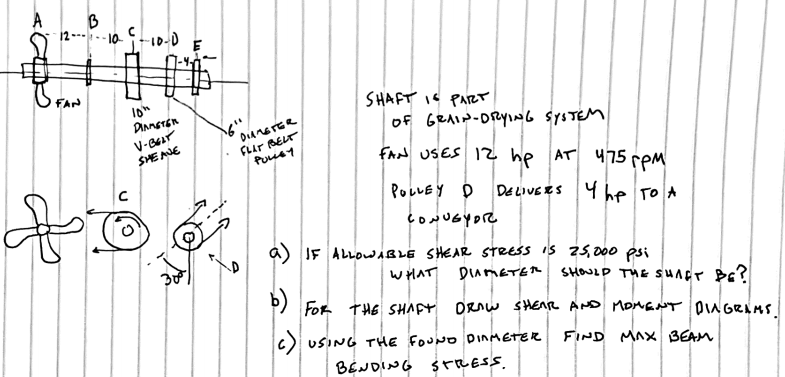 A B C D E
12 10 10 4
FAN
10"
DIAMETER
V-BELT
SHEAVE
6" DIAMETER
FLAT BELT
PULLEY
SHAFT IS PART
OF GRAIN-DRYING SYSTEM
FAN USES 12 hp AT 475 rpm
PULLEY D DELIVERS 4 hp TO A
CONVEYOR
C
30°
D
a) IF ALLOWABLE SHEAR STRESS IS 25,000 psi
WHAT DIAMETER SHOULD THE SHAFT BE?
b) FOR THE SHAFT DRAW SHEAR AND MOMENT DIAGRAMS.
c) USING THE FOUND DIAMETER FIND MAX BEAM
BENDING STRESS.